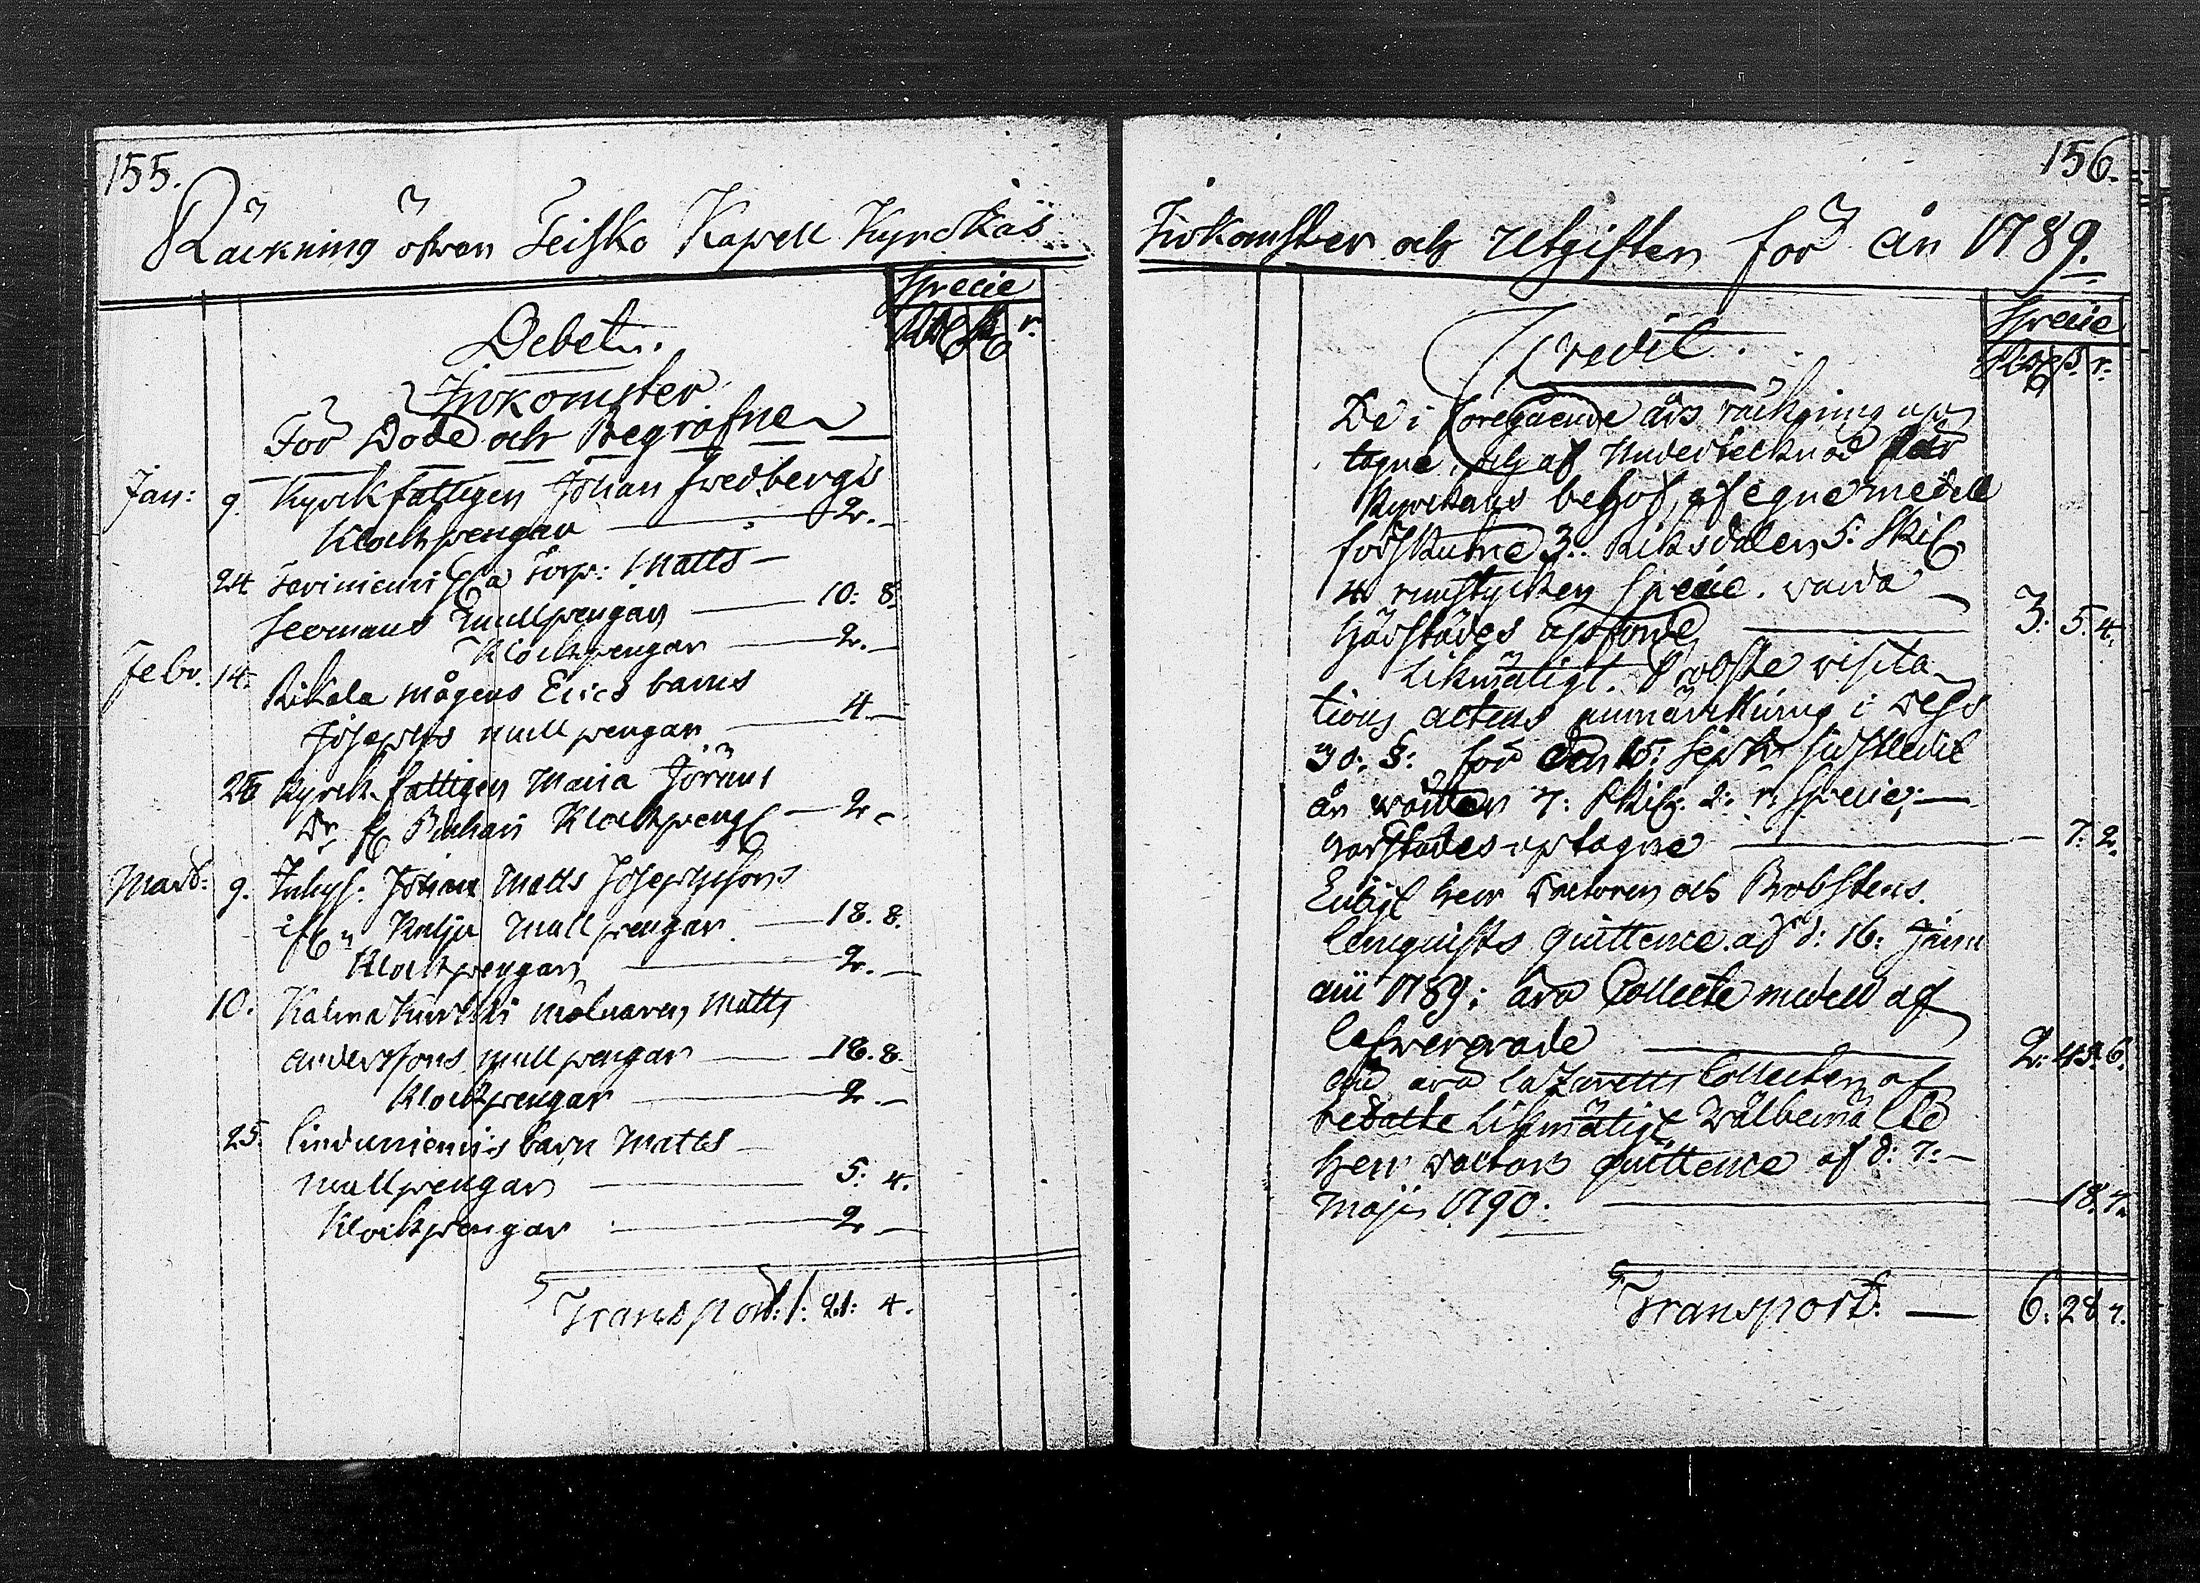 155.
Räckning öfwer Teisko Kapell Kyrckas
Specie
Rdr ß r.
Debet.
Inkomster
För Döde och Begrafne
Jan: 9. Kyrckfattigen Johan Fredbergs
Klockpengar — 2. —
24 Torp: Matts —
mullpengar — 10: 8.
Klockpengar — 2. —
Febr. 14. Rikala mågens Erics barns
Josephs mullpengar — 4. —
26 Kyrck-fattigen Maria Jörans
Dr Klockpeng — 2 —
Mart: 9. Inhys: Johan Matts Josephssons
mullpengar — 18. 8.
Klockpengar — 2. —
10. mölnaren Matts
Anderssons mullpengar — 18. 8.
Klockpengar — 2. —
25. Linduniemis barn Matts —
mullpengar — 5: 4.
Klockpengar — 2 —
Transport: 1: 21: 4.
156.
Inkomster och Utgifter för år 1789.
Specie
Rdr ß. r.
Credit.
De i föregående års räkning up
tagne, och af Undertecknad för
Kyrckans behof, af egne medell
förskutne 3: Riksdaler, 5: Skil
4 runstycken Specie. warda —
härstädes afförde — 3: 5. 4.
Likmätigt Probste visita
tions actens anmärkning i dess
30. §: för den 15: Sept: sidstledit
år warder 7: Skil: 2: r: Specie: —
härstädes uptagne — 7: 2.
Enligt herr Doctoren och Probstens
Lenquists quittence af d: 16: Janu
arii 1789: äro Collecte medell af
lefwererade — 2: 43. 6.
äro Lazaretts Collecten af
betalte Likmätigt Wälbemälte
Herr Doctors quittence af d: 7: —
Maji 1790. — 18. 4.
Transport: — 6: 28 7.